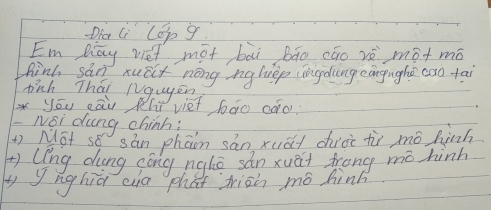 Địa lí Lớp 9
Em hãy viết một bài báo cáo về một mô
hình sản xuất nông nghiệp ứng dụng công nghệ cao tại
tỉnh Thái Nguyên.
* Yêu cầu khi viết báo cáo:
- Nội dung chính:
+) Một số sản phẩm sản xuất được từ mô hình
+) Ứng dụng công nghệ sản xuất trong mô hình
+) Ý nghĩa của phát triển mô hình